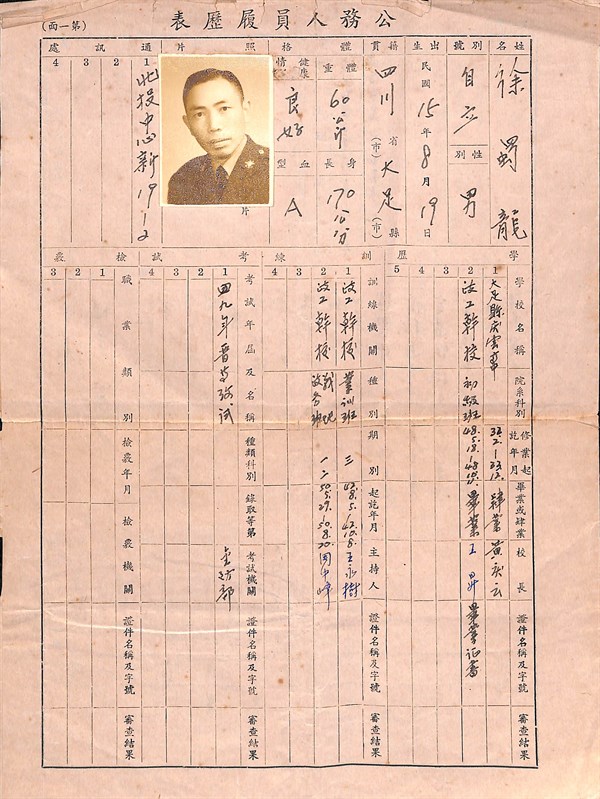 公務人員履歷表
(第一面)
姓名
徐蜀龍
別號
自立
性別
男
出生
民國15年8月19日
籍貫
四川省(市)大足縣(市)
體格
體重
60公斤
身長
170公分
健康情
良好
血型
A
照片
通訊處
1
北投中心新19-2
2
3
4
學歷
學校名稱
院系科別
修業起訖年月
畢業或肄業
校長
證件名稱及字號
審查結果
1
大足縣
肄業
黃慶云
2
政工幹校
初級班
48.5.18.
畢業
王昇
畢業証書
3
4
5
訓練
訓練機關
種別
期別
起訖年月
主持人
證件名稱及字號
審查結果
1
政工幹校
業訓班
三
42.8.5.
42.10.8.
王永樹
2
政工幹校
戰地政務班
一二
50.5.29.
50.8.20.
周中峰
3
4
考試
考試年屆及名稱
種類科別
錄取等第
考試機關
證件名稱及字號
審查結果
1
四九年晉
考試
國防部
2
3
4
檢覈
職業類別
檢覈年月
檢覈機關
證件名稱及字號
審查結果
1
2
3